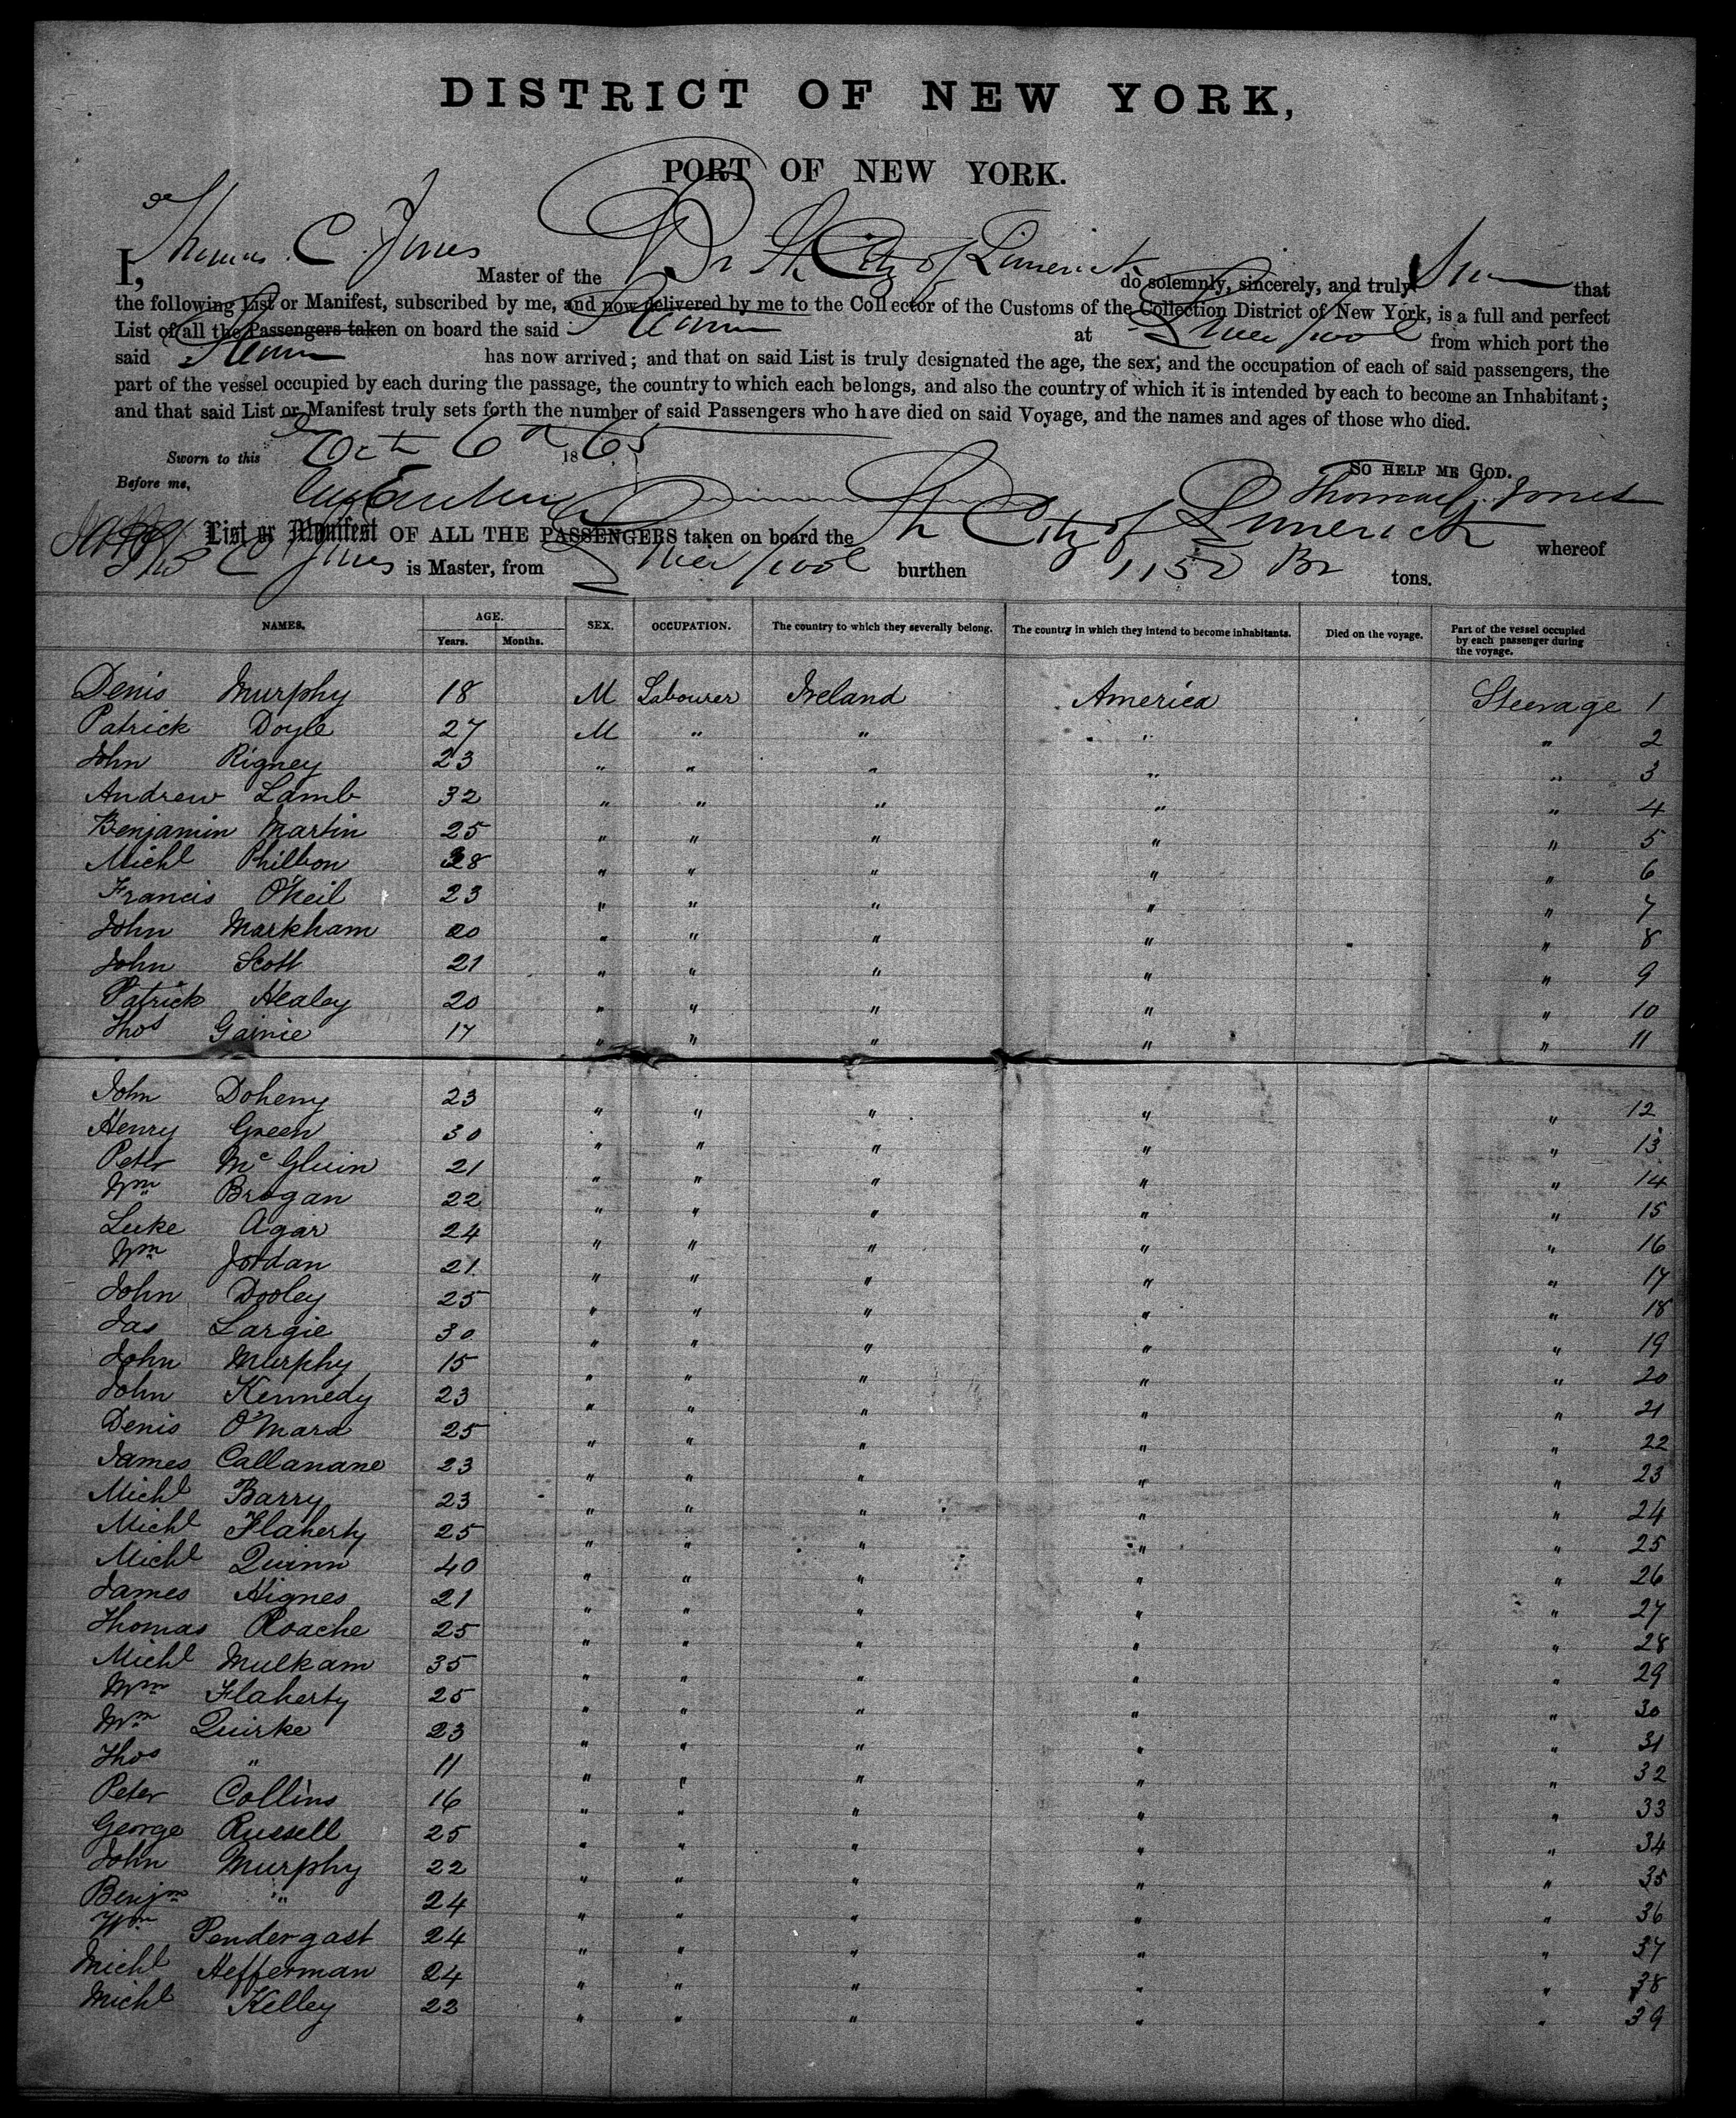 DISTRICT OF NEW YORK,
PORT OF NEW YORK.
I, Thomas C. Jones Master of the Br St City of Limerick do solemnly, sincerely, and truly that
the following List or Manifest, subscribed by me, and now delivered by me to the Collector of the Customs of the Collection District of New York, is a full and perfect
List of all the Passengers taken on board the said Steamer at Liverpool from which port the
said Steamer has now arrived; and that on said List is truly designated the age, the sex, and the occupation of each of said passengers, the
part of the vessel occupied by each during the passage, the country to which each belongs, and also the country of which it is intended by each to become an Inhabitant;
and that said List or Manifest truly sets forth the number of said Passengers who have died on said Voyage, and the names and ages of those who died.
Sworn to this Octr 6th 1865 SO HELP ME GOD.
Before me, Thomas C. Jones
List or Manifest OF ALL THE PASSENGERS taken on board the St City of Limerick whereof
Thos C Jones is Master, from Liverpool burthen 1152 Br tons.
NAMES. AGE. Years. Months. SEX. OCCUPATION. The country to which they severally belong. The country in which they intend to become inhabitants. Died on the voyage. Part of the vessel occupied by each passenger during the voyage.
Denis Murphy 18 M Labourer Ireland America Steerage 1
Patrick Doyle 27 M " " " " 2
John Rigney 23 " " " " " 3
Andrew Lamb 32 " " " " " 4
Benjamin Martin 25 " " " " " 5
Michl Philbon 28 " " " " " 6
Francis O'Neil 23 " " " " " 7
John Markham 20 " " " " " 8
John Scott 21 " " " " " 9
Patrick Healey 20 " " " " " 10
Thos Gainie 17 " " " " " 11
John Doheny 23 " " " " " 12
Henry Green 30 " " " " " 13
Peter McGluin 21 " " " " " 14
Wm Brogan 22 " " " " " 15
Luke Agar 24 " " " " " 16
Wm Jordan 21 " " " " " 17
John Dooley 25 " " " " " 18
Jas Largie 30 " " " " " 19
John Murphy 15 " " " " " 20
John Kennedy 23 " " " " " 21
Denis O'Mara 25 " " " " " 22
James Callanane 23 " " " " " 23
Michl Barry 23 " " " " " 24
Michl Flaherty 25 " " " " " 25
Michl Quinn 40 " " " " " 26
James Hignes 21 " " " " " 27
Thomas Roache 25 " " " " " 28
Michl Mulkam 35 " " " " " 29
Wm Flaherty 25 " " " " " 30
Wm Quirke 23 " " " " " 31
Thos " 11 " " " " " 32
Peter Collins 16 " " " " " 33
George Russell 25 " " " " " 34
John Murphy 22 " " " " " 35
Benjm " 24 " " " " " 36
Wm Pendergast 24 " " " " " 37
Michl Hefferman 24 " " " " " 38
Michl Kelley 22 " " " " " 39